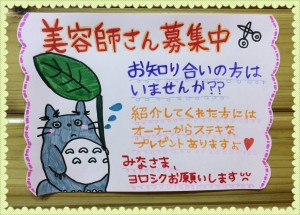 美容師さん募集中
お知り合いの方は
いませんか??
紹介してくれた方には
オーナーからステキな
プレゼントありますよ
みなさま、
ヨロシクお願いします